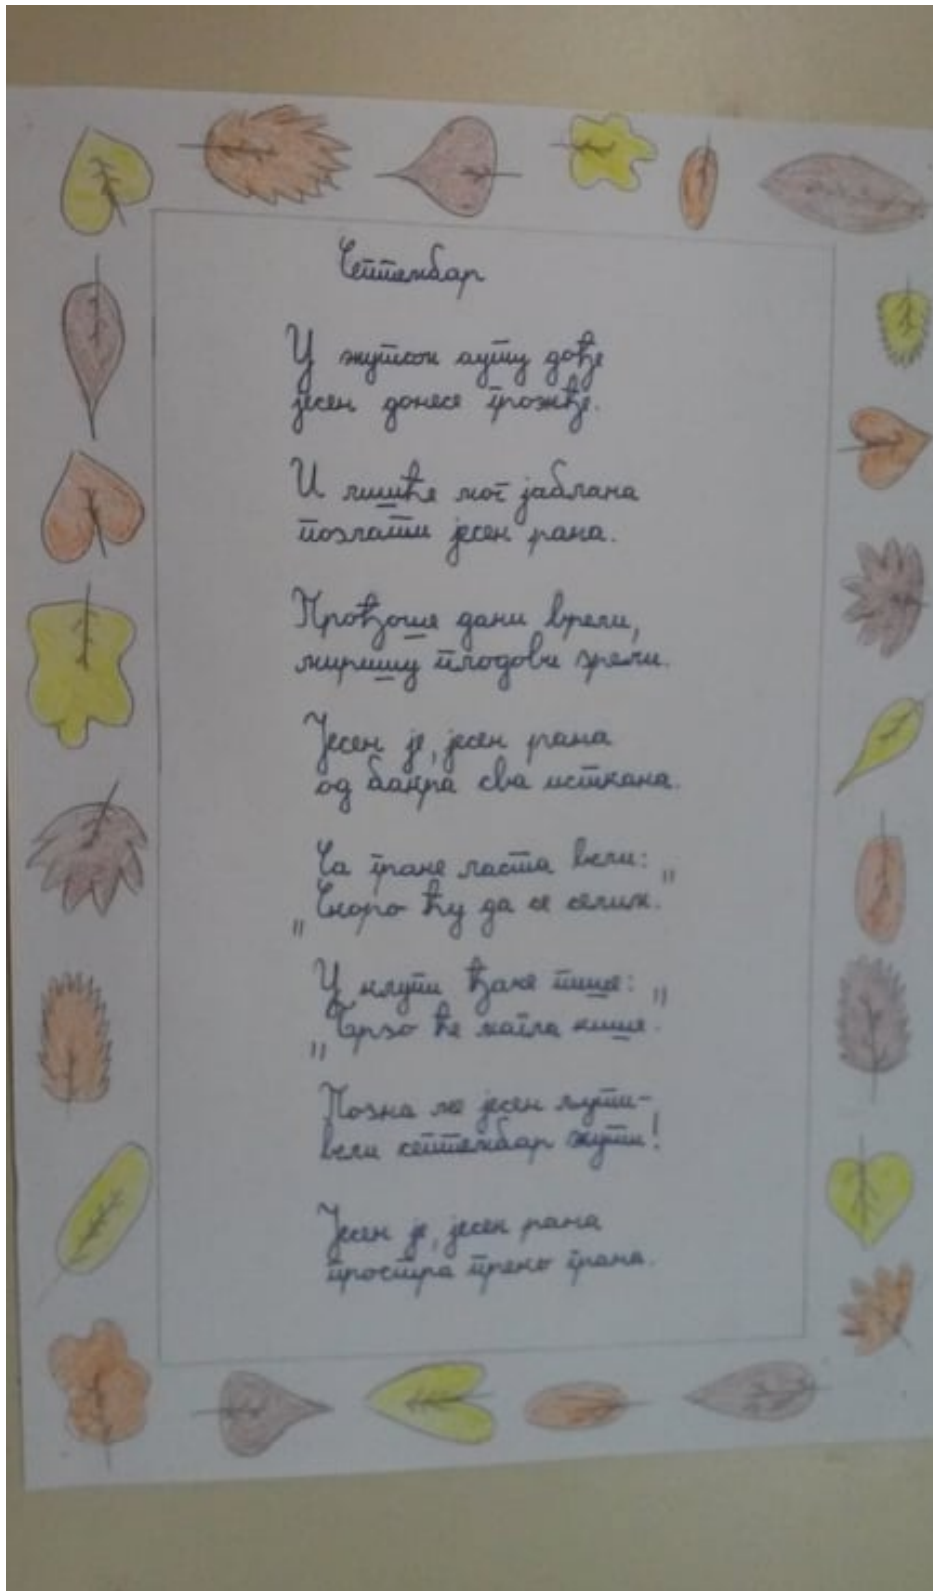 Септембар
У жутом ауту дође
јесен донесе грожђе.
И лишће мог јаблана
позлати јесен рана.
Прођоше дани врели,
миришу плодови зрели.
Јесен је, јесен рана
од бакра сва исткана.
Са гране ласта вели:
„Скоро ћу да се селим."
У клупи ђаче пише:
„Брзо ће магла кише."
Позна ме јесен љути-
вели септембар жути!
Јесен је, јесен рана
простра преко грана.